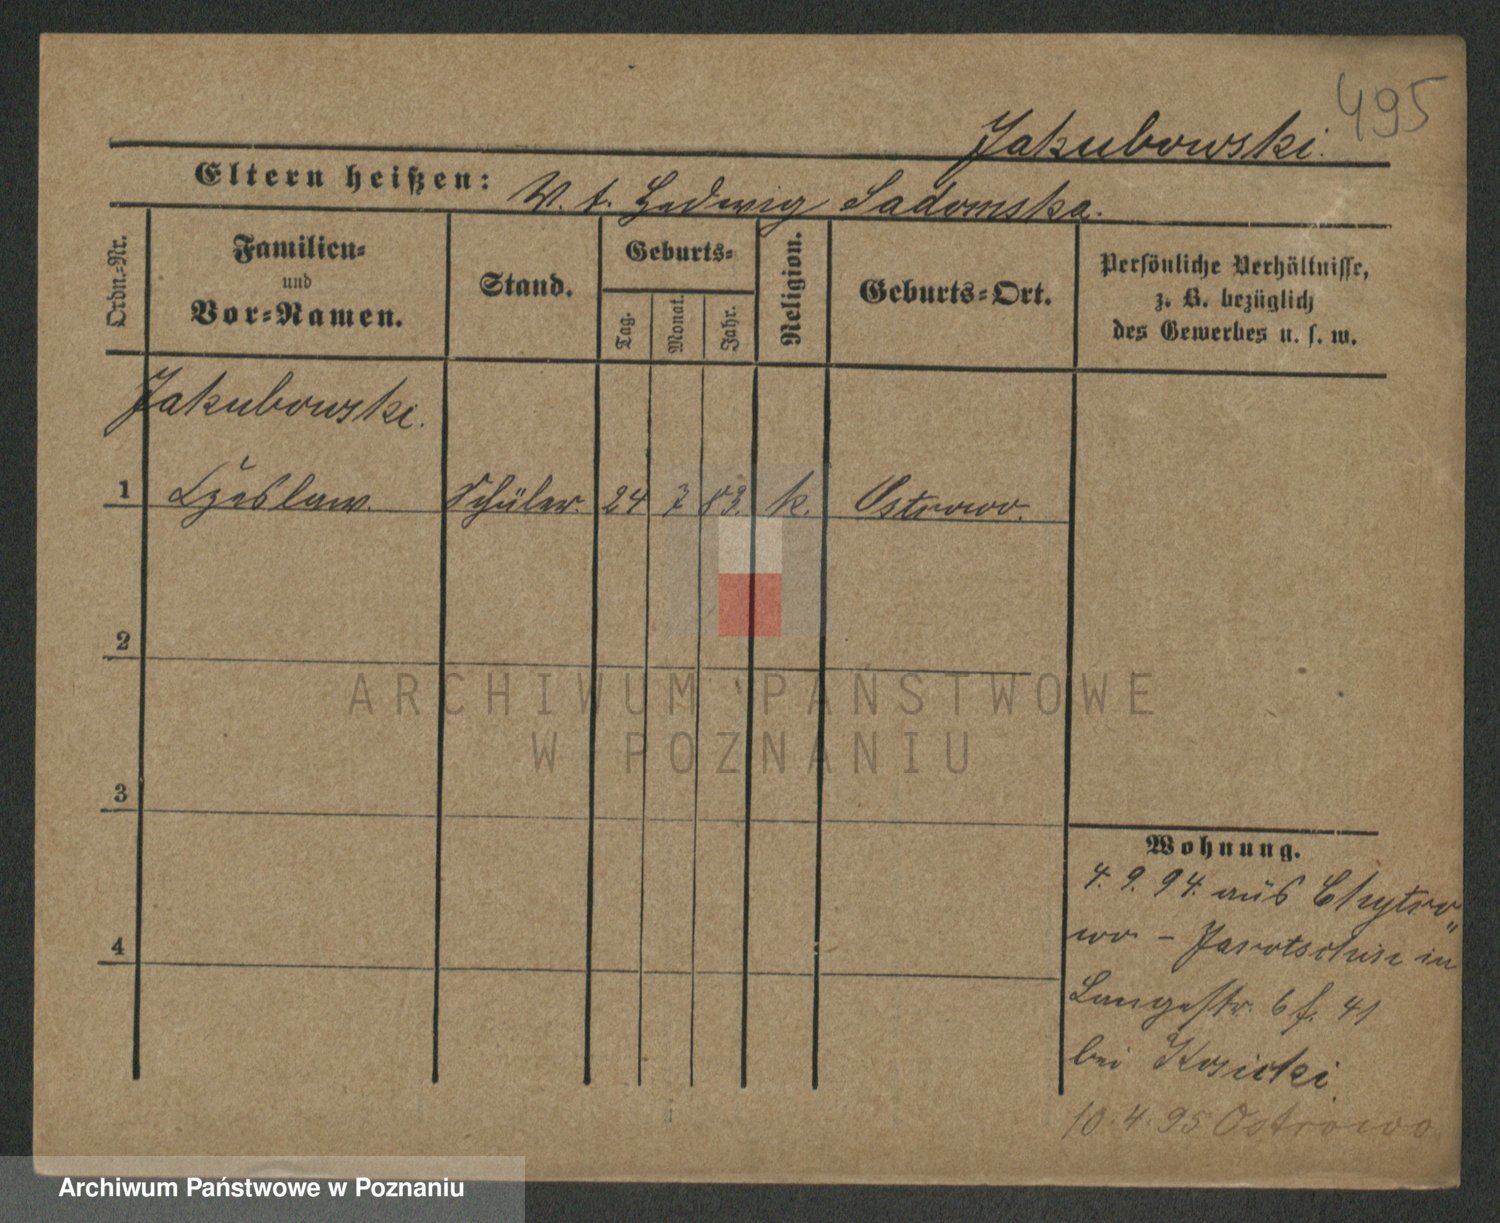 495
Jakubowski.
Eltern heißen: V. t. Hedwig Sadomska.
Ordn.-Nr.
Familien-
und
Vor-Namen.
Stand.
Geburts-
Tag.
Monat.
Jahr.
Religion.
Geburts-Ort.
Persönliche Verhältnisse,
z. B. bezüglich
des Gewerbes u. s. w.
Jakubowski.
1 Czeslaw. Schüler. 24 7 83. k. Ostrowo.
2
ARCHIWUM PAŃSTWOWE
W POZNANIU
3
4
Wohnung.
4. 9. 94. aus Chytro„
wo - Jarotschin in
Langestr. 6 f. 41
bei Kosicki
10. 4. 95 Ostrowo
Archiwum Państwowe w Poznaniu